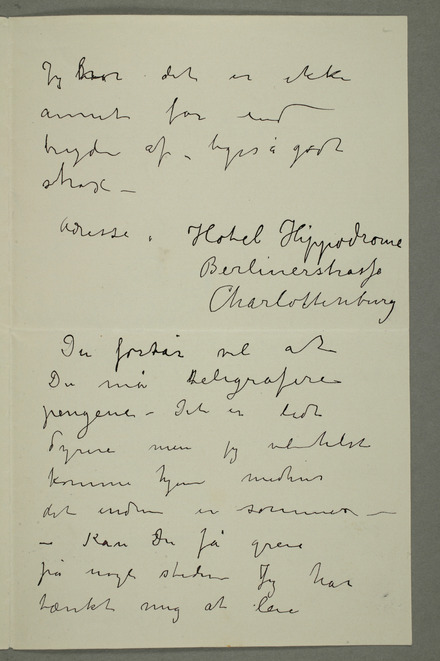 Jeg tror det er ikke
annet for end
bryde af, ligeså godt
strax —
Adresse, Hotel Hippodrome
Berlinerstrasse
Charlottenburg
Du forstår vel at
Du må telegrafere
pengene — Det er lidt
dyrere men jeg vil helst
komme hjem medens
det endnu er sommer —
— Kan Du få greie
på noget steder Jeg har
tænkt mig at leie